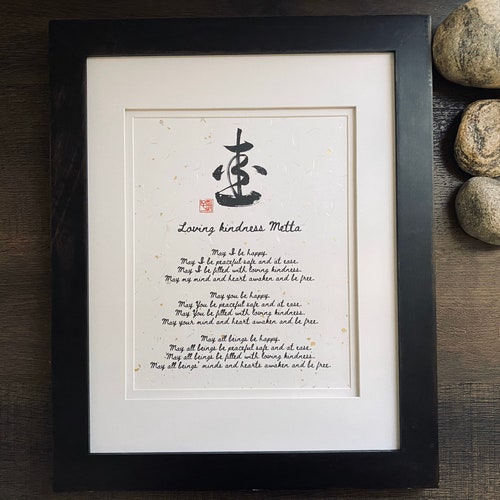 Loving kindness Metta
May I be happy.
May I be peaceful safe and at ease.
May I be filled with loving kindness.
May my mind and heart awaken and be free.
May you be happy.
May You be peaceful safe and at ease.
May You be filled with loving kindness.
May your mind and heart awaken and be free.
May all beings be happy.
May all beings be peaceful safe and at ease.
May all beings be filled with loving kindness.
May all beings' minds and hearts awaken and be free.